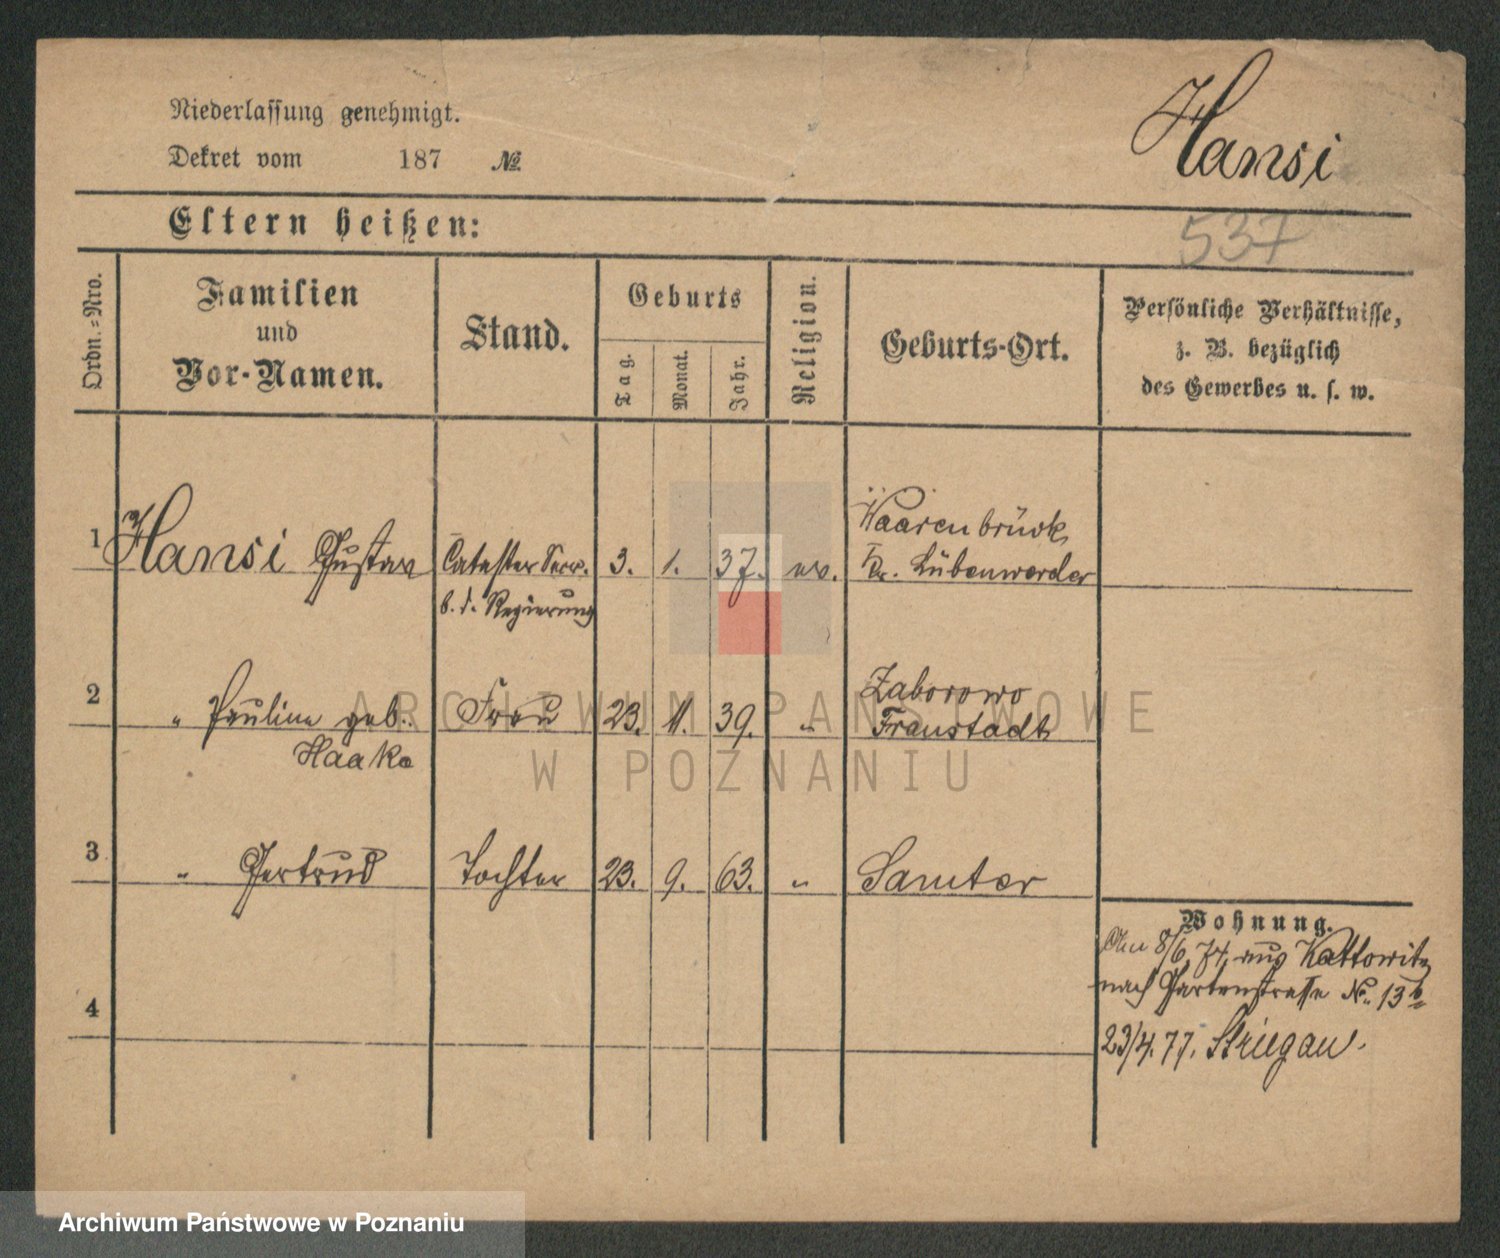 Niederlassung genehmigt.
Dekret vom 187 №
Hansi
537
Eltern heißen:
Ordn.=Nro.
Familien
und
Vor-Namen.
Stand.
Geburts
Tag.
Monat.
Jahr.
Religion.
Geburts-Ort.
Persönliche Verhältnisse,
z. B. bezüglich
des Gewerbes u. s. w.
1 Hansi Gustav Cataster 3. 1. 37. ev. Kr. Lübenwerder
b. d. Regierung
Zaborowo
2 " Pauline geb. Frau 23. 11. 39. " Fraustadt
Haake
3 " Gertrud Tochter 23. 9. 63. " Samter
4
Wohnung.
Am 8/6 74. aus Kattowitz
nach Gartenstrasse No. 13b
23/4. 77. Striegau.
ARCHIWUM PAŃSTWOWE
W POZNANIU
Archiwum Państwowe w Poznaniu